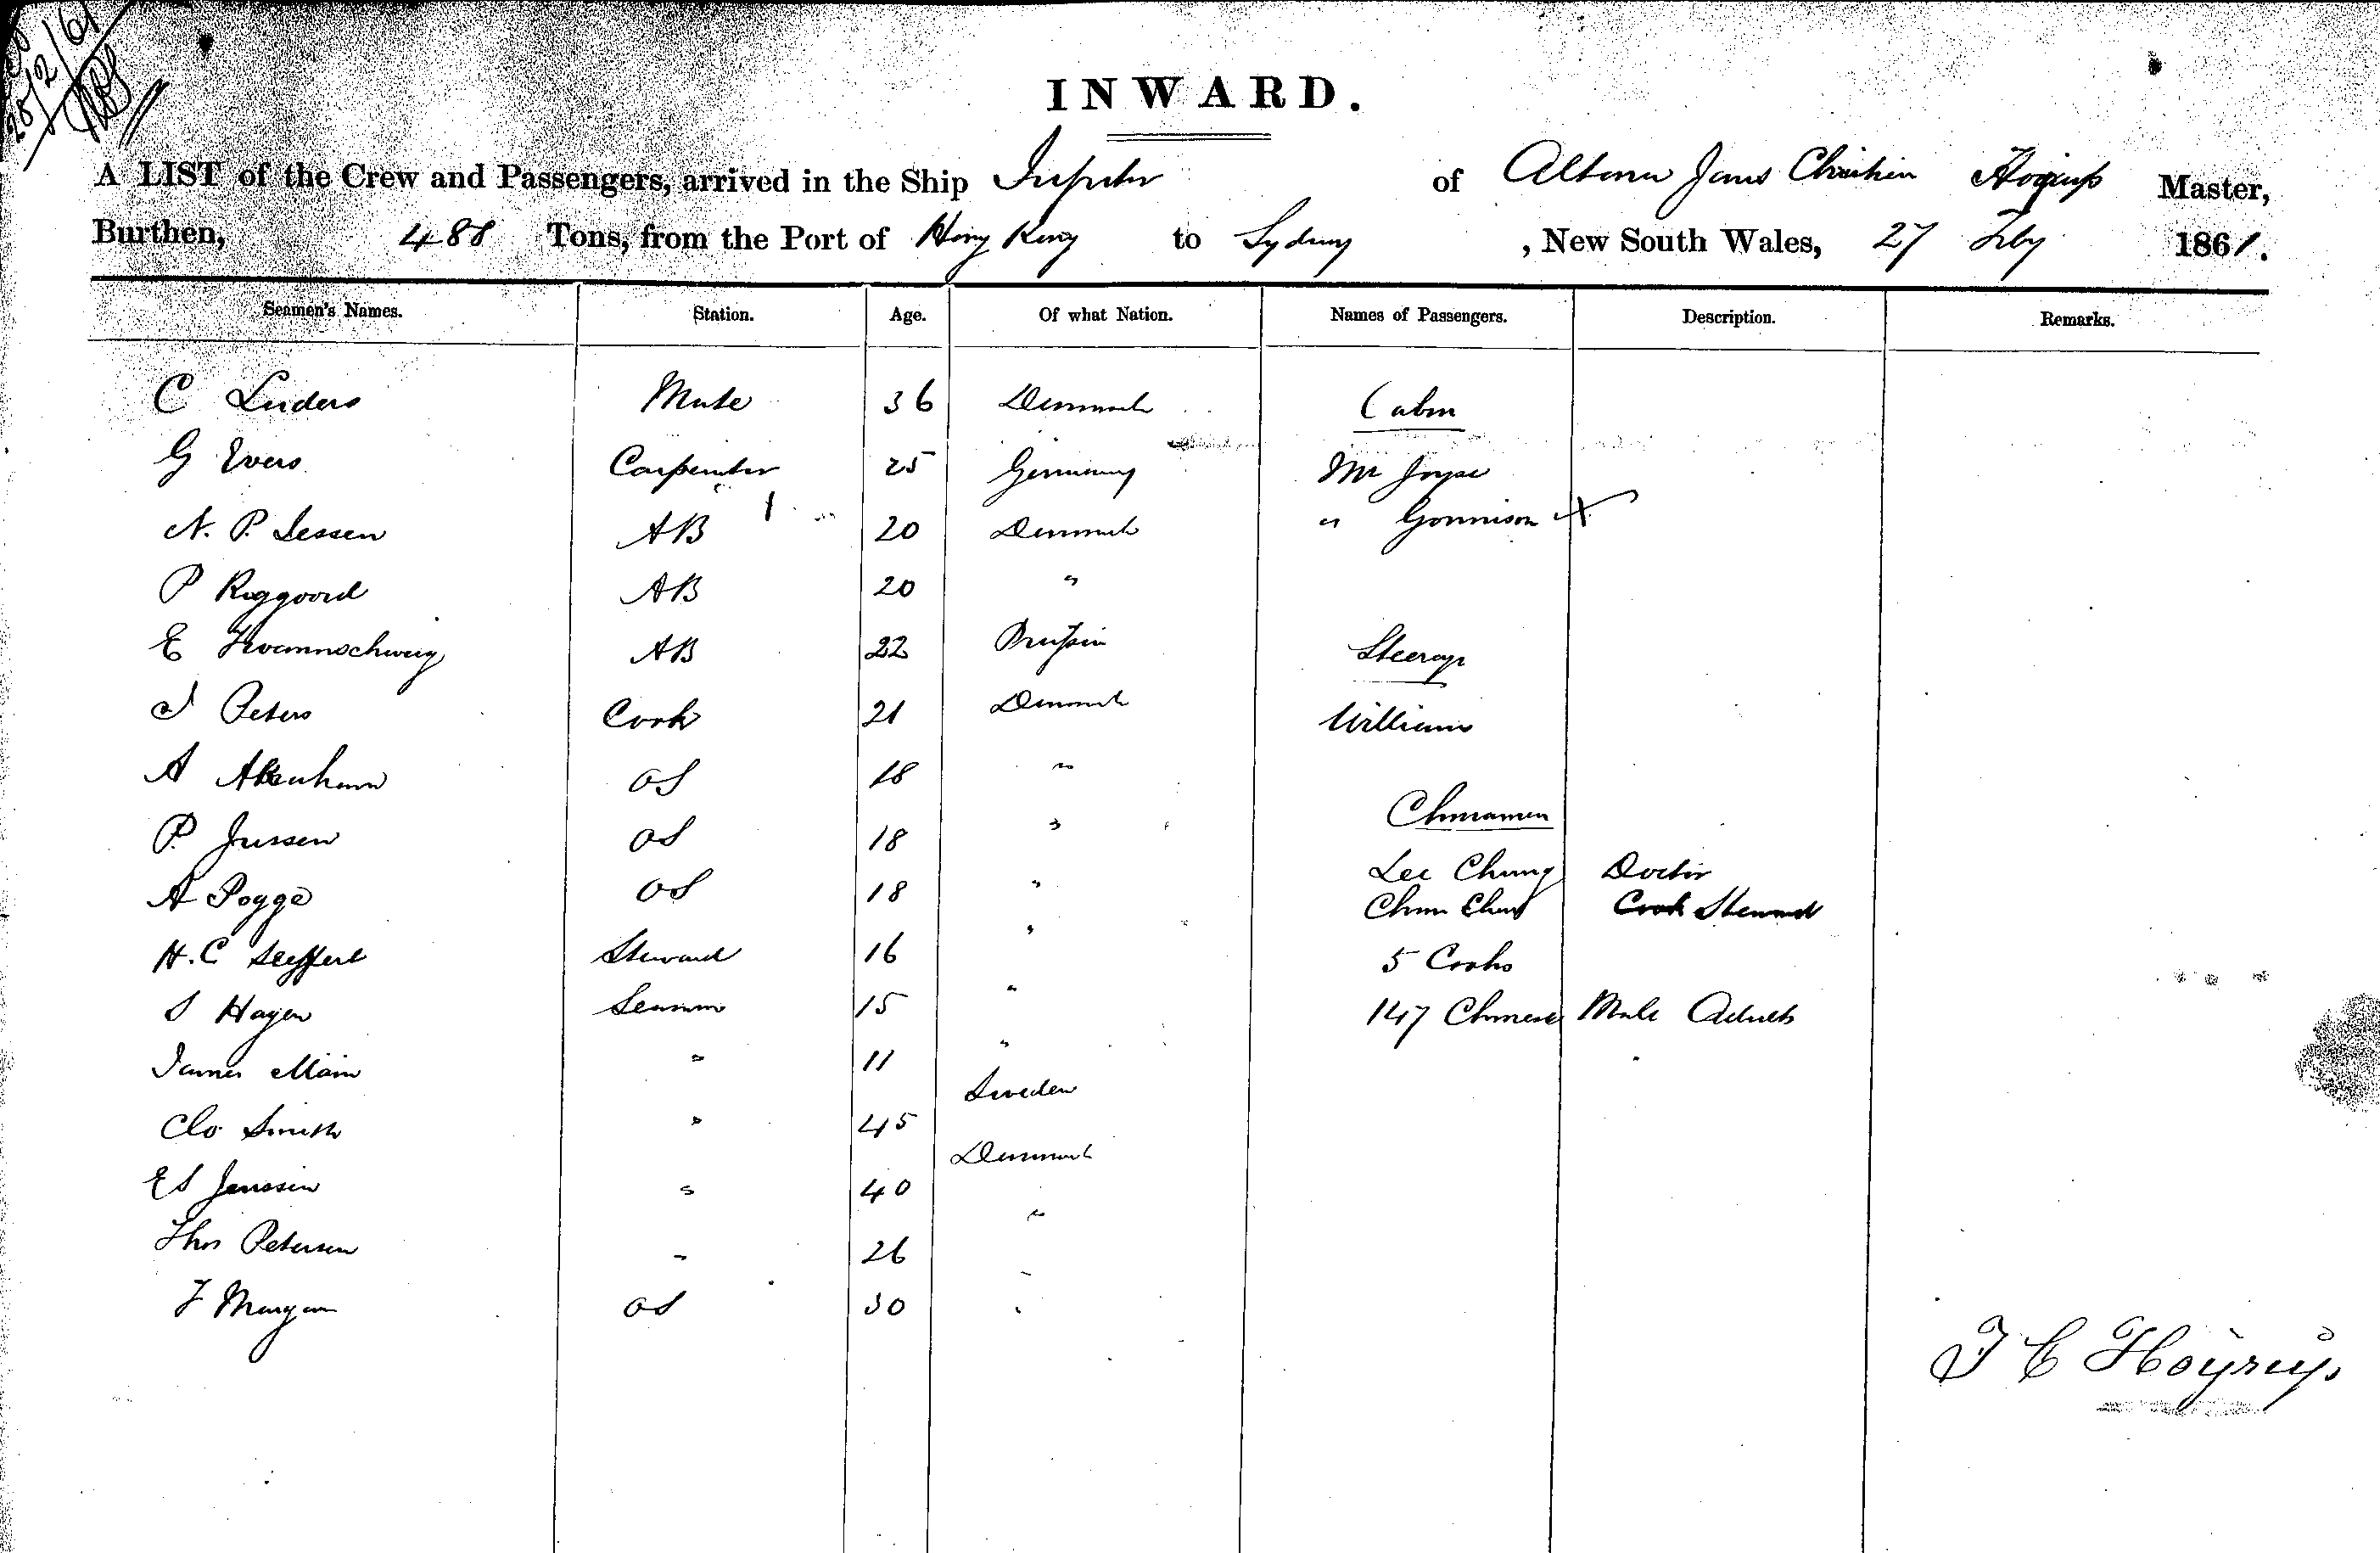 28/2/61
INWARD.
A LIST of the Crew and Passengers, arrived in the Ship Jupiter of Altona Jans Christian Hoyrup Master,
Burthen, 488 Tons, from the Port of Hong Kong to Sydney, New South Wales, 27 Feby 1861.
Seamen's Names. Station. Age. Of what Nation. Names of Passengers. Description. Remarks.
C Luders Mate 36 Denmark Cabin
G Evers Carpenter 25 Germany Mr Joyse
N. P. Jessen AB 20 Denmark " Gonnison
P Roggoord AB 20 "
E AB 22 Prussia Steerage
J Peters Cook 21 Denmark Williams
A OS 18 "
Chinamen
P. Jussen OS 18 "
Lee Chung Doctor
A Pogge OS 18 "
Chun Steward
H. C Seyffert Steward 16 " 5 Cooks
J Hagen Seaman 15 " 147 Chinese Male Adults
James Main " 11 "
Sweden
Clo Smith " 45
Denmark
ES Janssen " 40
"
Thos Petersen " 26
"
F Morgan OS 30 "
J C Hoyrup